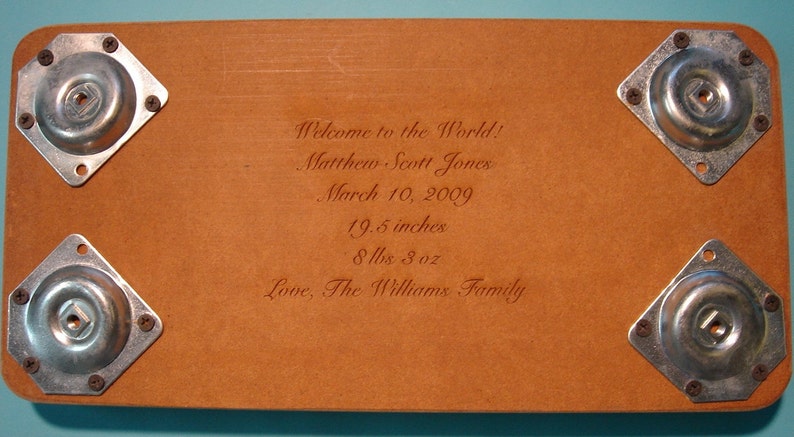 Welcome to the World!
Matthew Scott Jones
March 10, 2009
19.5 inches
8 lbs 3 oz
Love, The Williams Family